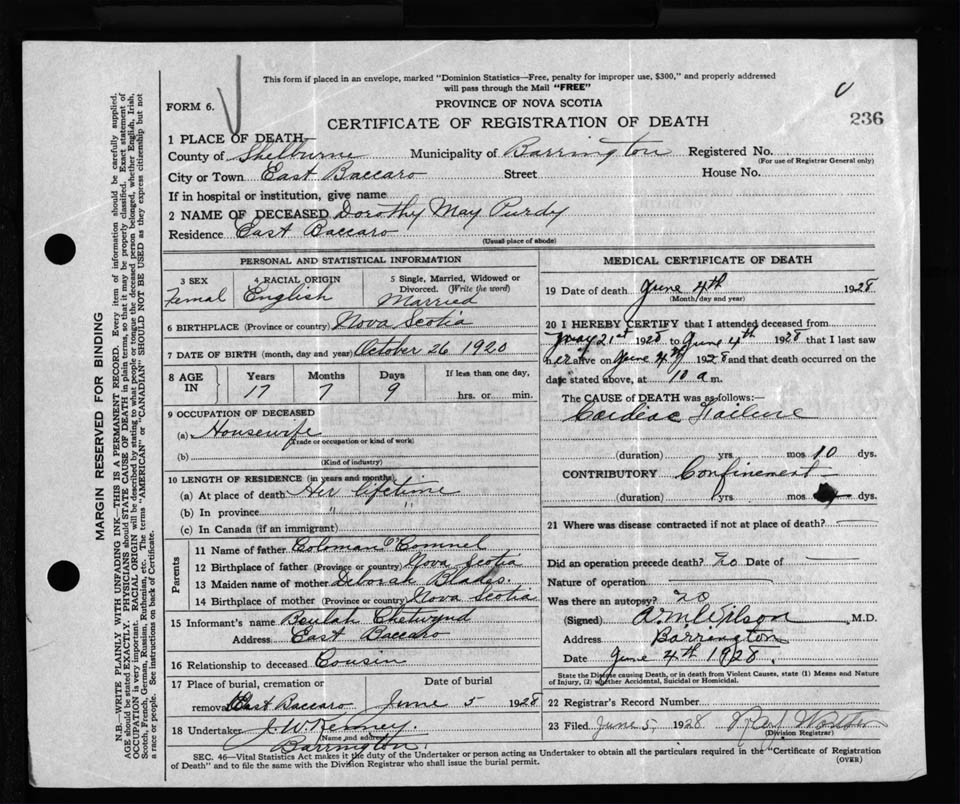 This form if placed in an envelope, marked "Dominion Statistics—Free, penalty for improper use, $300," and properly addressed
will pass through the Mail "FREE"
FORM 6.
PROVINCE OF NOVA SCOTIA
CERTIFICATE OF REGISTRATION OF DEATH
236
1 PLACE OF DEATH—
County of Shelburne Municipality of Barrington Registered No.
(For use of Registrar General only)
City or Town East Baccaro Street House No.
If in hospital or institution, give name
2 NAME OF DECEASED Dorothy May Purdy
Residence East Baccaro
(Usual place of abode)
PERSONAL AND STATISTICAL INFORMATION
3 SEX 4 RACIAL ORIGIN 5 Single, Married, Widowed or
Divorced. (Write the word)
Femal English Married
6 BIRTHPLACE (Province or country) Nova Scotia
7 DATE OF BIRTH (month, day and year) October 26 1920
8 AGE IN Years Months Days If less than one day,
17 7 9 hrs. or min.
9 OCCUPATION OF DECEASED
(a) Housewife
(Trade or occupation or kind of work)
(b)
(Kind of industry)
10 LENGTH OF RESIDENCE (in years and months)
(a) At place of death Her lifetime
(b) In province " "
(c) In Canada (if an immigrant)
Parents
11 Name of father Coloman O'Connel
12 Birthplace of father (Province or country) Nova Scotia
13 Maiden name of mother Deborah Blades.
14 Birthplace of mother (Province or country) Nova Scotia
15 Informant's name Beulah Chetwynd
Address East Baccaro
16 Relationship to deceased Cousin
17 Place of burial, cremation or Date of burial
removal East Baccaro June 5 1928
18 Undertaker J. W. Kenney.
(Name and address)
Barrington.
MEDICAL CERTIFICATE OF DEATH
19 Date of death June 4th 1928
(Month/day and year)
20 I HEREBY CERTIFY that I attended deceased from
May 21st 1928 to June 4th 1928 that I last saw
her alive on June 4th 1928 and that death occurred on
date stated above, at 10 a.m.
The CAUSE of DEATH was as follows:
Cardiac Failure
(duration) yrs mos 10 dys.
CONTRIBUTORY Confinement
(duration) yrs mos dys.
21 Where was disease contracted if not at place of death?
Did an operation precede death? No Date of
Nature of operation
Was there an autopsy? No
(Signed) A. M. Wilson M.D.
Address Barrington
Date June 4th 1928.
State the Disease causing Death, or in death from Violent Causes, state (1) Means and Nature
of Injury, (2) whether Accidental, Suicidal or Homicidal.
22 Registrar's Record Number
23 Filed June 5, 1928
(Division Registrar)
SEC. 46—Vital Statistics Act makes it the duty of the Undertaker or person acting as Undertaker to obtain all the particulars required in the "Certificate of Registration
of Death" and to file the same with the Division Registrar who shall issue the burial permit.
(OVER)
MARGIN RESERVED FOR BINDING
N.B.—WRITE PLAINLY WITH UNFADING INK—THIS IS A PERMANENT RECORD. Every item of information should be carefully supplied.
AGE should be stated EXACTLY. PHYSICIANS should STATE CAUSE OF DEATH in plain terms, so that it may be properly classified. Exact statement of
OCCUPATION is very important. RACIAL ORIGIN will be described by stating to what people or tongue the deceased person belonged, whether English, Irish,
Scotch, French, German, Russian, Ruthenian, etc. The terms "AMERICAN" or "CANADIAN" SHOULD NOT BE USED as they express citizenship but not
a race or people. See instructions on back of Certificate.